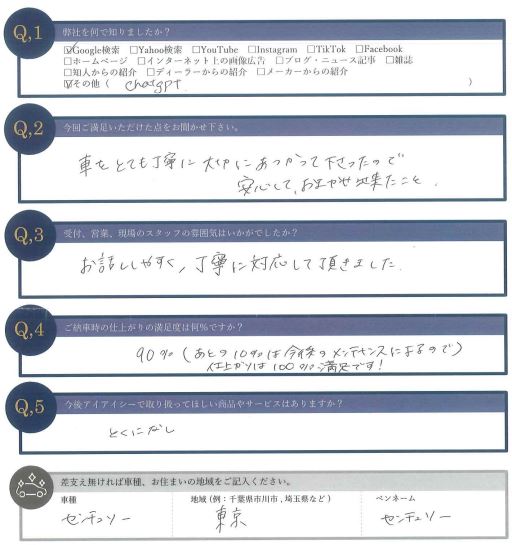 Q,1 弊社を何で知りましたか？
☑Google検索 □Yahoo検索 □YouTube □Instagram □TikTok □Facebook
□ホームページ □インターネット上の画像広告 □ブログ・ニュース記事 □雑誌
□知人からの紹介 □ディーラーからの紹介 □メーカーからの紹介
☑その他（ chatgpt ）
Q,2 今回ご満足いただけた点をお聞かせ下さい。
車をとても丁寧に大切にあつかって下さったので
安心して、お任せ出来たこと。
Q,3 受付、営業、現場のスタッフの雰囲気はいかがでしたか？
お話ししやすく、丁寧に対応して頂きました。
Q,4 ご納車時の仕上がりの満足度は何%ですか？
90%（あとの10%は今後のメンテナンスによるので）
仕上がりは100%満足です！
Q,5 今後アイアイシーで取り扱ってほしい商品やサービスはありますか？
とくになし
差支え無ければ車種、お住まいの地域をご記入ください。
車種 地域（例：千葉県市川市,埼玉県など） ペンネーム
センチュリー 東京 センチュリー